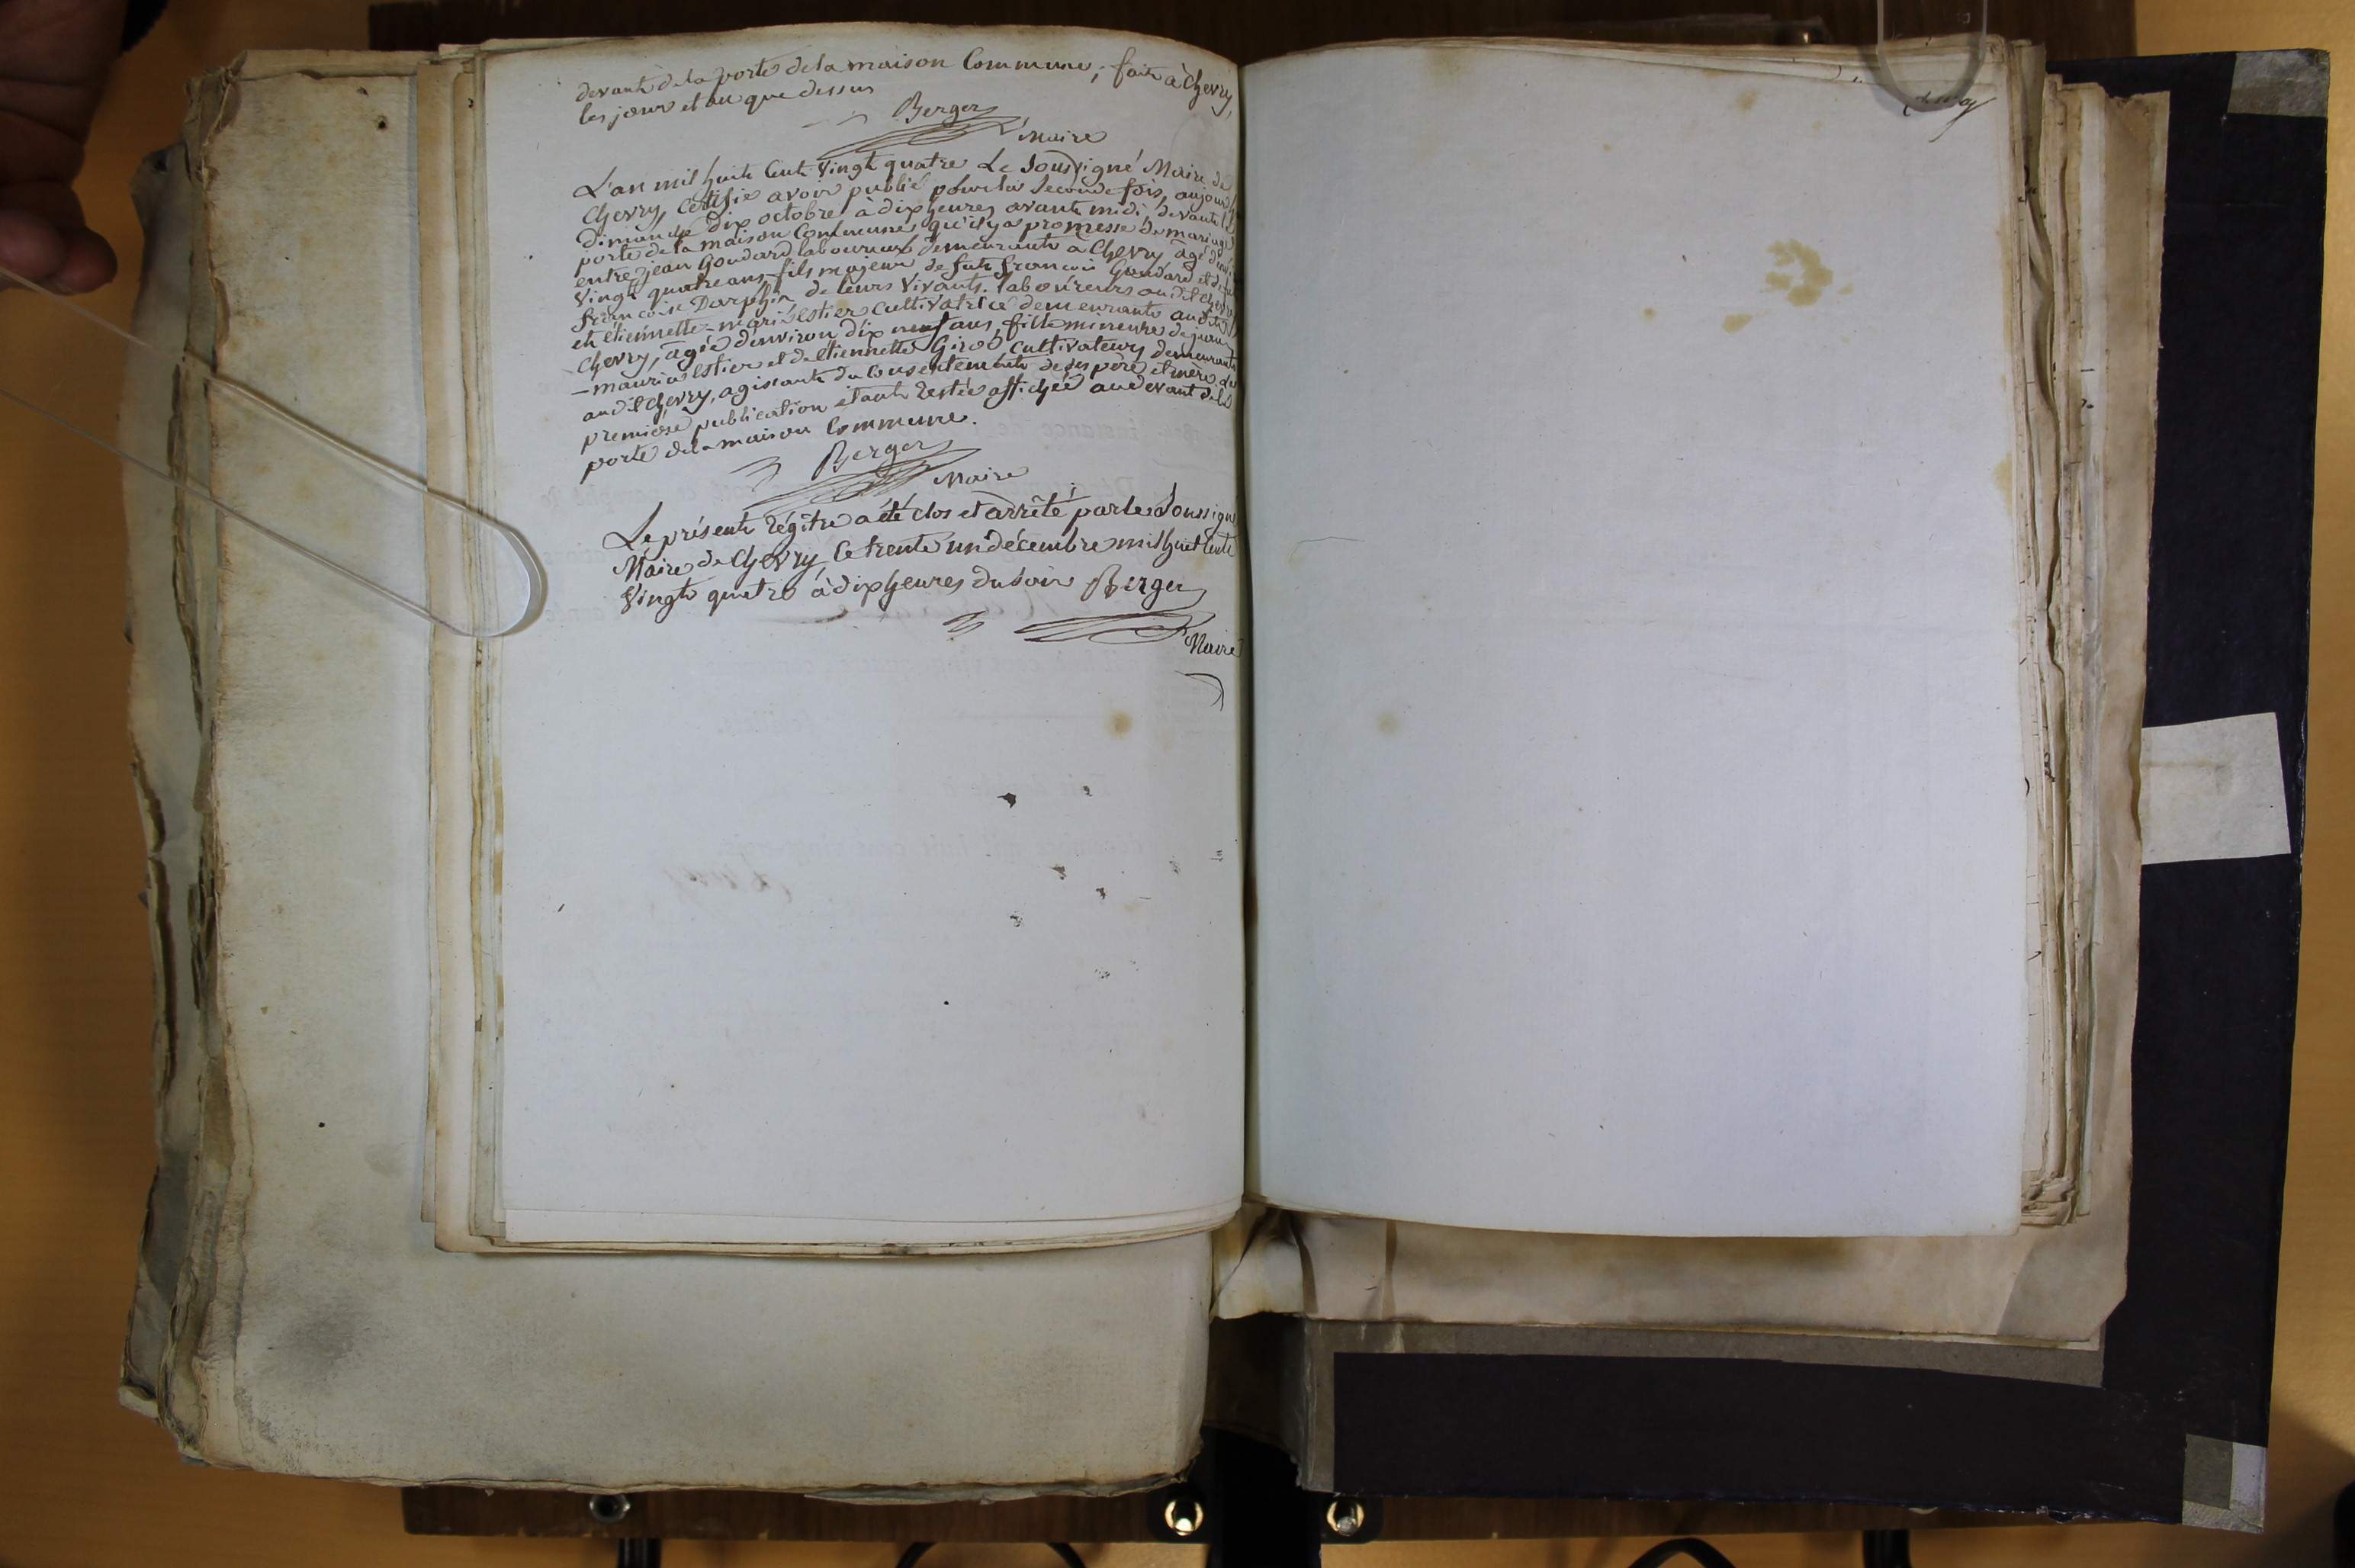 devant de la porte de la maison Commune, fait à Chevry,
les jour et an que dessus
Berger
Maire
L'an mil huit Cent Vingt quatre Le Soussigné Maire de
Chevry, Certifie avoir publié pour la Seconde fois, aujourd
dimanche dix octobre à dix heures avant midi, devant la
porte de la maison Commune, qu'il y a promesse de mariage
entre jean Goudard laboureur demeurant à Chevry âgé d'environ
Vingt quatre ans, fils majeur de fut françois Goudard et de
françoise Darphin de leurs Vivants laboureurs au dit Chevry
et etiennette-marie Estier Cultivatrice demeurante au dit
Chevry, âgée d'environ dix neuf ans, fille mineure de jean
-maurice Estier et d'etiennette Girod Cultivateurs demeurants
au dit Chevry, agissante du Consentement de ses père et mère La
premiere publication étant restée affichée au devant de la
porte de la maison Commune.
Berger
Maire
Le présent régitre a été clos et arrêté par le Soussigné
Maire de Chevry, le trente un décembre mil huit Cent
Vingt quatre à dix heures du Soir Berger
Maire